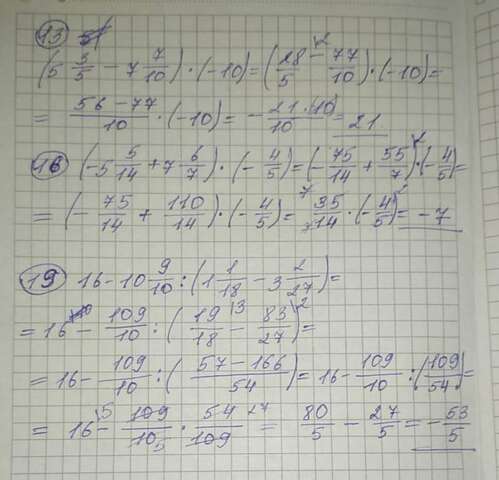 13
(5 3/5 - 7 7/10) · (-10) = (28/5 - 77/10) · (-10) =
= (56 - 77)/10 · (-10) = - (21 · 10)/10 = 21
16 (-5 5/14 + 7 6/7) · (- 4/5) = (- 75/14 + 55/7) · (- 4/5) =
= (- 75/14 + 110/14) · (- 4/5) = 35/14 · (- 4/5) = -7
19 16 - 10 9/10 : (1 1/18 - 3 2/27) =
= 16 - 109/10 : (19/18 - 83/27) =
= 16 - 109/10 : ((57 - 166)/54) = 16 - 109/10 : (109/54) =
= 16 - 109/10 · 54/109 = 80/5 - 27/5 = - 53/5